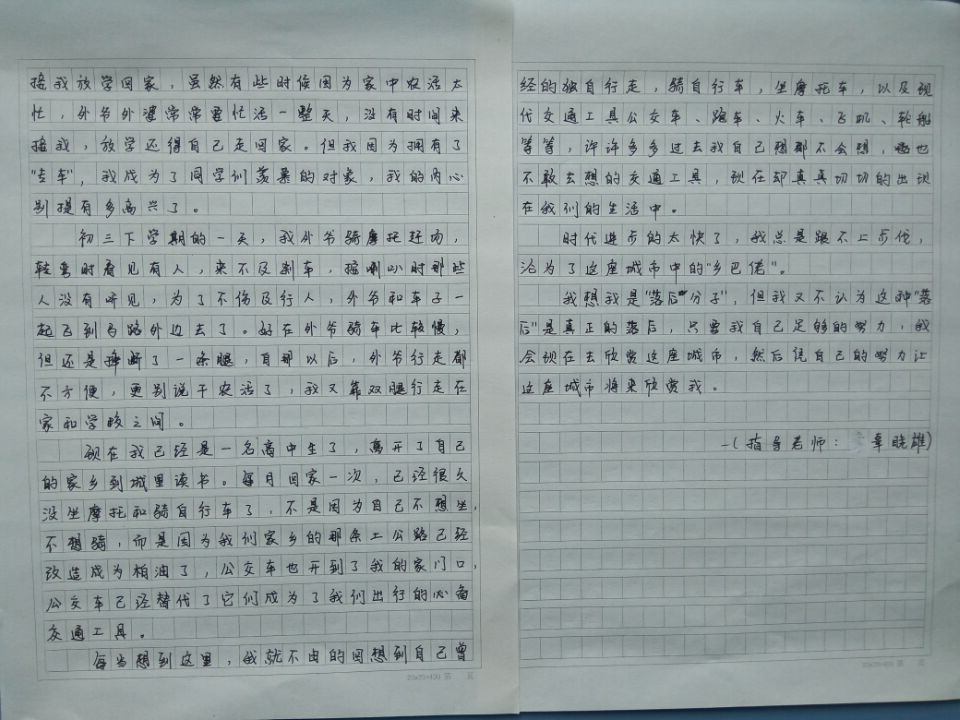 接我放学回家，虽然有些时候因为家中农活太
忙，外爷外婆常常要忙活一整天，没有时间来
接我，放学还得自己走回家。但我因为拥有了
"专车"，我成为了同学们羡慕的对象，我的内心
别提有多高兴了。
初三下学期的一天，我外爷骑摩托赶场，
转弯时看见有人，来不及刹车，按喇叭时那些
人没有听见，为了不伤及行人，外爷和车子一
起飞到马路外边去了。好在外爷骑车比较慢，
但还是摔断了一条腿，自那以后，外爷行走都
不方便，更别说干农活了，我又靠双腿行走在
家和学校之间。
现在我已经是一名高中生了，离开了自己
的家乡到城里读书。每月回家一次，已经很久
没坐摩托和骑自行车了，不是因为自己不想坐，
不想骑，而是因为我们家乡的那条土公路已经
改造成为柏油了，公交车也开到了我的家门口，
公交车已经替代了它们成为了我们出行的必备
交通工具。
每当想到这里，我就不由的回想到自己曾
20×20=400 第 页
经的独自行走，骑自行车，坐摩托车，以及现
代交通工具公交车、跑车、火车、飞机、轮船
等等，许许多多过去我自己想都不会想，也
不敢去想的交通工具，现在却真真切切的出现
在我们的生活中。
时代进步的太快了，我总是跟不上步伐，
沦为了这座城市中的"乡巴佬"。
我想我是"落后分子"，但我又不认为这种"落
后"是真正的落后，只要我自己足够的努力，我
会现在去欣赏这座城市，然后说自己的努力让
这座城市将来欣赏我。
—(指导老师：章晓雄)
20×20=400 第 页